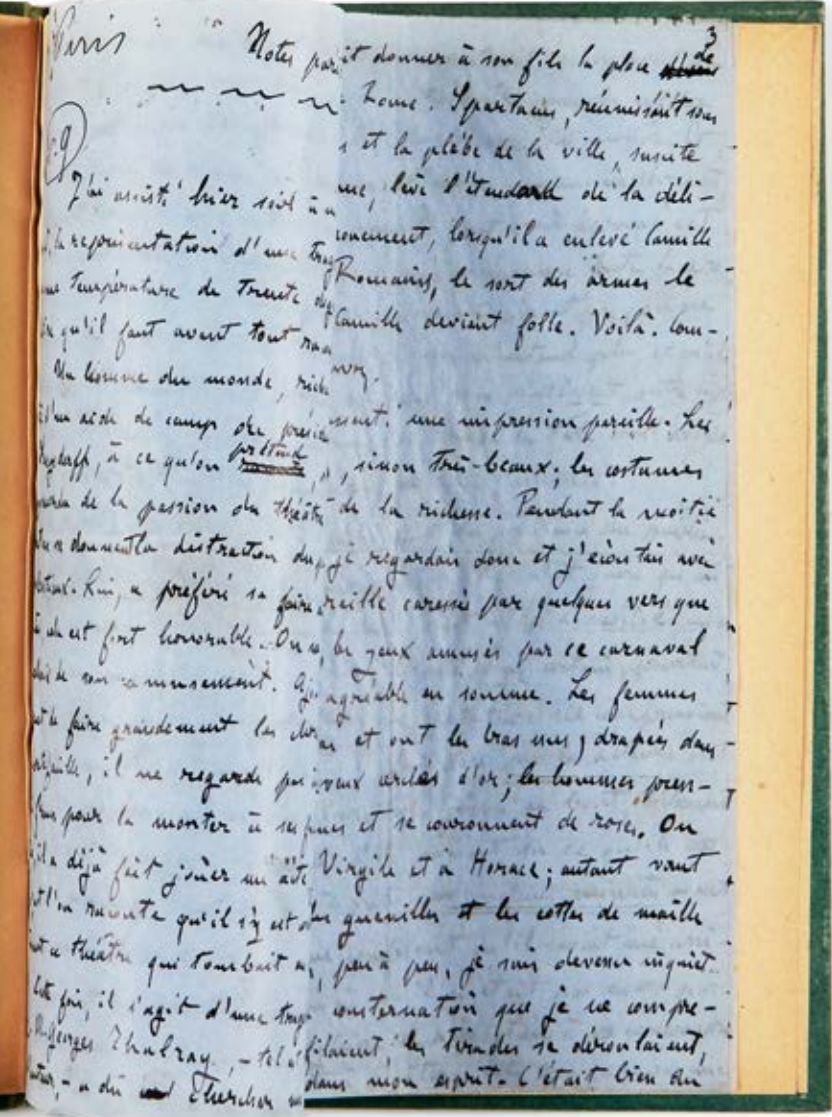 Paris
Notes par
9
J'ai assisté hier soir à u
la représentation d'une trag
une température de trente deg
qu'il faut avant tout
Un homme du monde, riche
d'un aide de camp du prési
à ce qu'on prétend
de la passion du théâtr
donner la distraction du
Lui, a préféré se faire
est fort honorable. On
de son amusement.
de faire grandement les cho
il ne regarde pas
pour la monter à ses
il a déjà fait jouer un acte
l'on raconte qu'il s'y est
ce théâtre qui tombait
Cette fois, il s'agit d'une trag
Georges Thalray, – tel
– a dû chercher
3
it donner à son fils la place de
Rome. Spartacus, réunissant sous
s et la plèbe de la ville, suscite
me, lève l'étendard de la déli-
ronnement, lorsqu'il a enlevé Camille
Romains, le sort des armes le
Camille devient folle. Voilà. Com-
une impression pareille. Les
, sinon très-beaux; les costumes
de la richesse. Pendant la moitié
je regardais donc et j'écoutais avec
reille caressée par quelques vers que
les yeux amusés par ce carnaval
agréable en somme. Les femmes
et ont les bras nus, drapées dans
cerclés d'or; les hommes
et se couronnent de roses. On
Virgile et à Horace; autant vaut
les guenilles et les cottes de maille
peu à peu, je suis devenu inquiet.
consternation que je ne compre-
filaient, les tirades se déroulaient,
dans mon esprit. C'était bien du